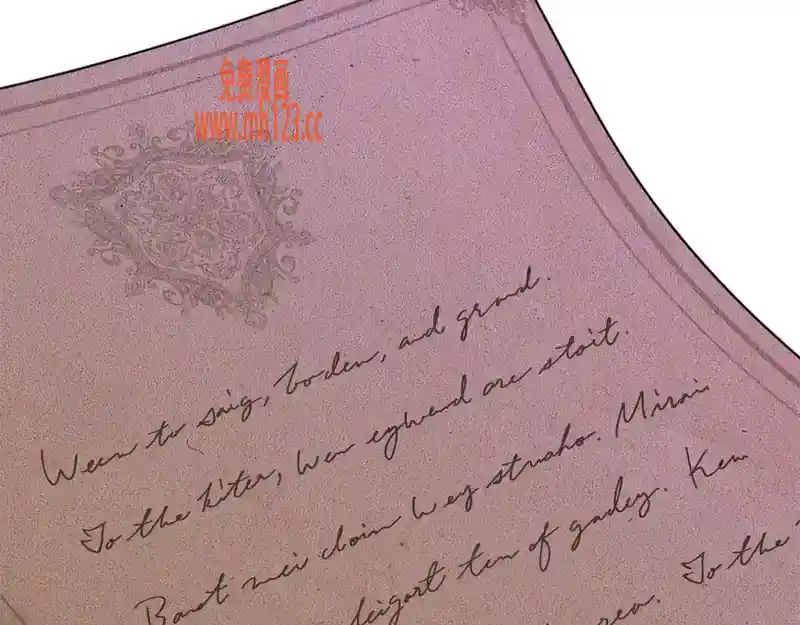 免费漫画
www.mh123.cc
Ween to saig, boden, and grond.
To the kiter, wen eghend are stoit.
Barst mei doin wey strusho. Mirai
deigart ten of gadey. Ken
To the